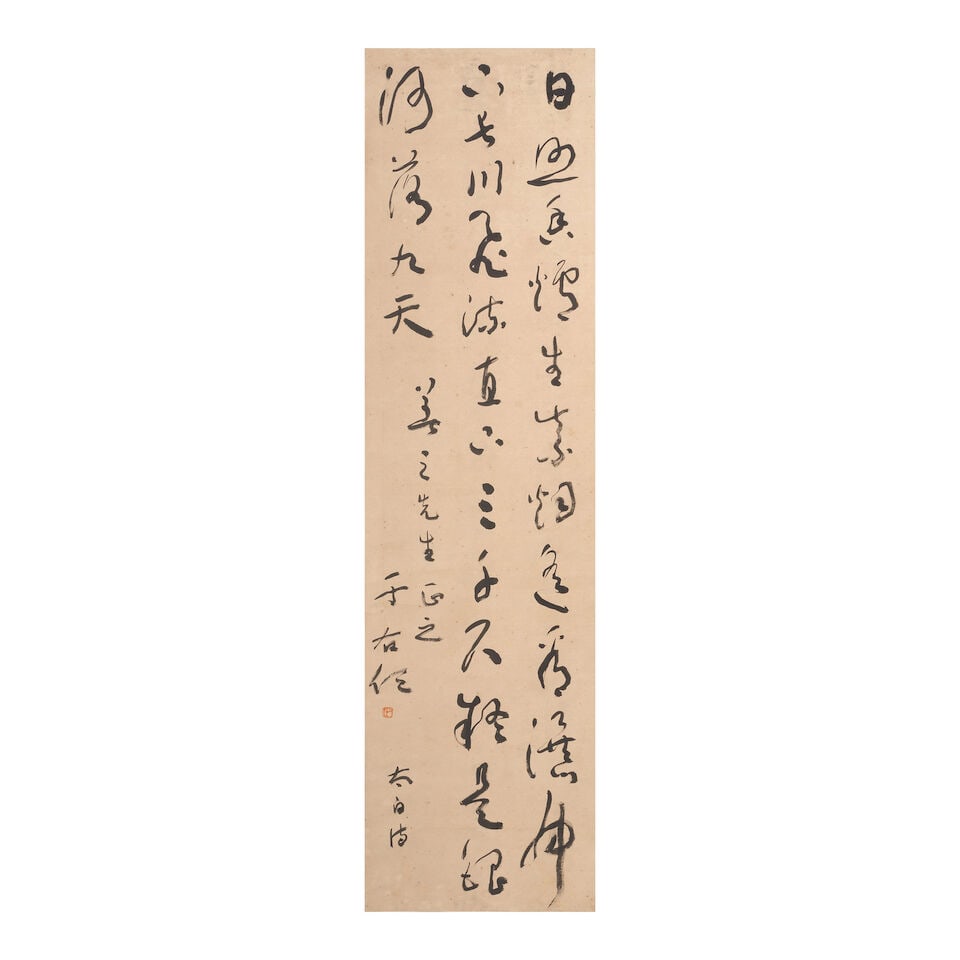 日照香爐生紫烟遙看瀑布
下長川飛流直下三千尺疑是銀
河落九天
之先生正之
于右任
太白詩